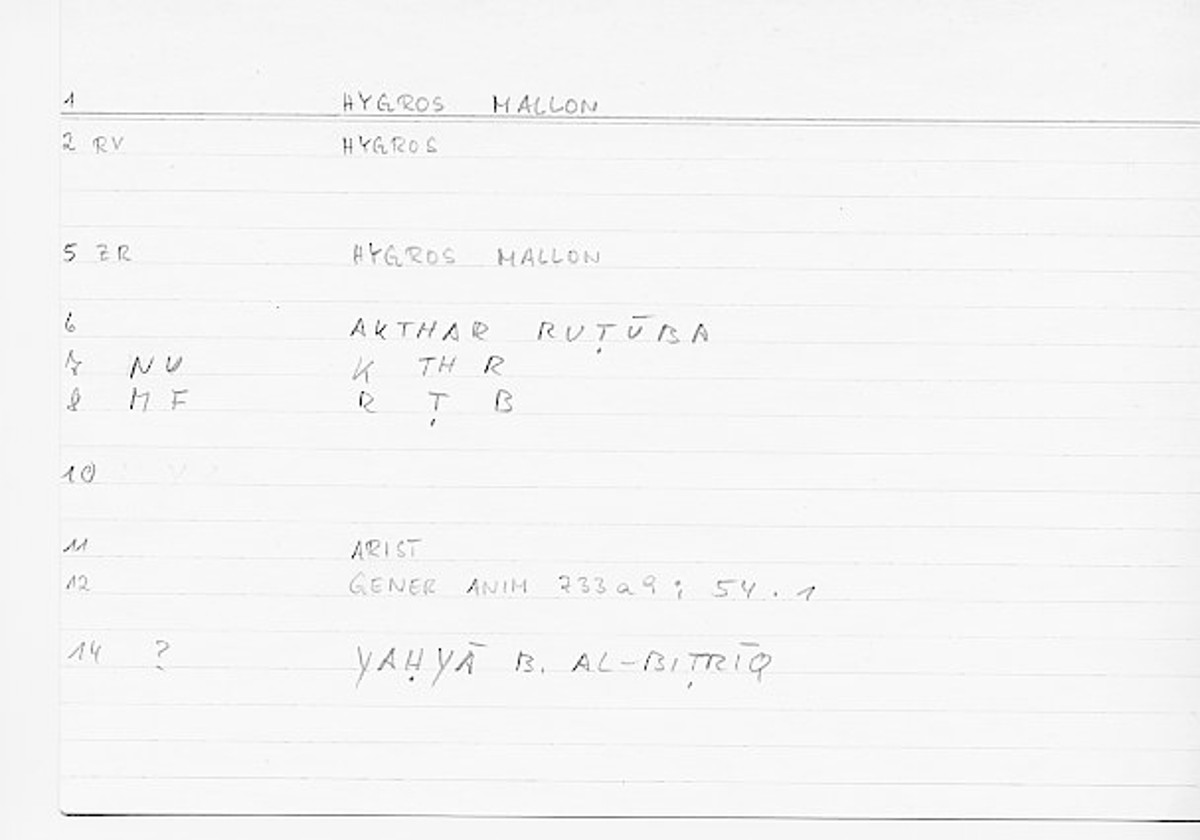 1 HYGROS MALLON
2 RV HYGROS
5 ZR HYGROS MALLON
6 AKTHAR RUṬŪBA
7 NU K TH R
8 MF R Ṭ B
10
11 ARIST
12 GENER ANIM 733a9; 54.1
14 ? YAḤYĀ B. AL-BIṬRĪQ